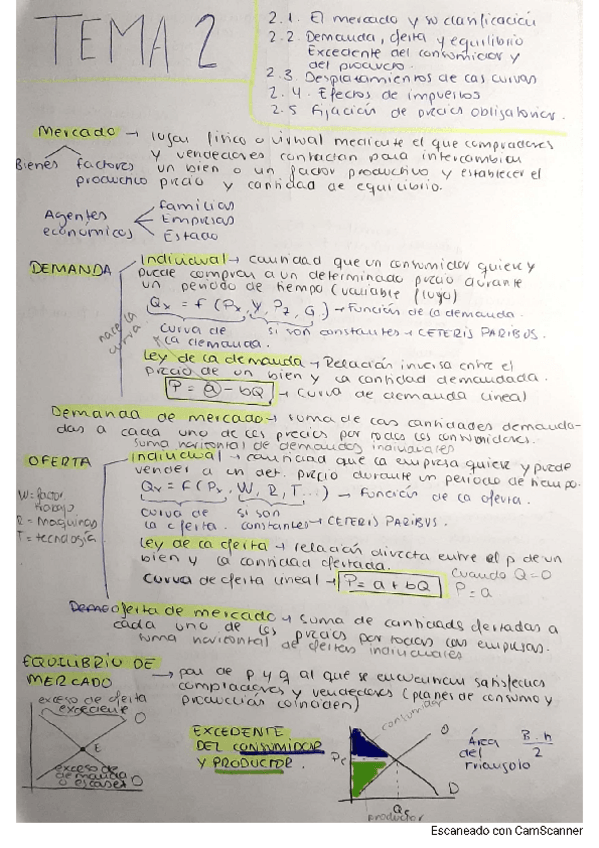 TEMA 2
2.1. El mercado y su clasificación
2.2. Demanda, oferta y equilibrio
Excedente del consumidor y
del productor.
2.3. Desplazamientos de las curvas
2.4. Efectos de impuestos
2.5 Fijación de precios obligatorios.
Mercado → lugar físico o virtual mediante el que compradores
y vendedores contactan para intercambiar
Bienes factores un bien o un factor productivo y establecer el
productivo precio y cantidad de equilibrio.
Agentes económicos
Familias
Empresas
Estado
DEMANDA
Individual → cantidad que un consumidor quiere y
puede comprar a un determinado precio durante
un periodo de tiempo (variable flujo)
Qx = f (Px, Y, Pz, G.) → Función de la demanda.
nace la curva
curva de la demanda. si son constantes → CETERIS PARIBUS.
Ley de la demanda → Relación inversa entre el
precio de un bien y la cantidad demandada.
P = a - bQ → curva de demanda lineal
Demanda de mercado → suma de las cantidades demanda-
das a cada uno de los precios por todos los consumidores.
suma horizontal de demandas individuales
OFERTA
Individual → cantidad que la empresa quiere y puede
vender a un det. precio durante un periodo de tiempo.
W = factor trabajo
R = maquinas
T = tecnología
Qx = f (Px, W, R, T...) → Función de la oferta.
curva de la oferta. si son constantes → CETERIS PARIBUS.
Ley de la oferta → relación directa entre el p de un
bien y la cantidad ofertada.
curva de oferta lineal → P = a + bQ
Cuando Q=0
P = a
oferta de mercado → suma de cantidades ofertadas a
cada uno de los precios por todas las empresas.
suma horizontal de ofertas individuales
EQUILIBRIO DE MERCADO → par de P y q al que se encuentran satisfechos
compradores y vendedores (planes de consumo y
producción coinciden)
exceso de oferta
excedente
O
E
exceso de demanda o escasez
D
EXCEDENTE
DEL CONSUMIDOR
Y PRODUCTOR.
consumidor
O
D
Qe
productor
Área del Triangulo
B·h
2
Escaneado con CamScanner